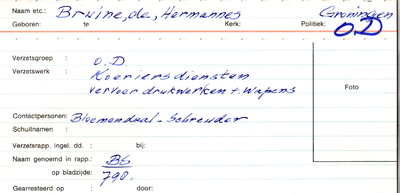 Naam etc.: Bruine, de, Hermannes Groningen
Geboren: te Kerk: Politiek: O.D
Verzetsgroep : O.D
Verzetswerk : Koeriersdiensten
vervoer drukwerken + Wapens
Foto
Contactpersonen: Bloemendaal - Schreuder
Schuilnaam :
Verzetsrapp. ingel. dd. : bij:
Naam genoemd in rapp.: BS
op bladzijde: 790.
Gearresteerd op : door: